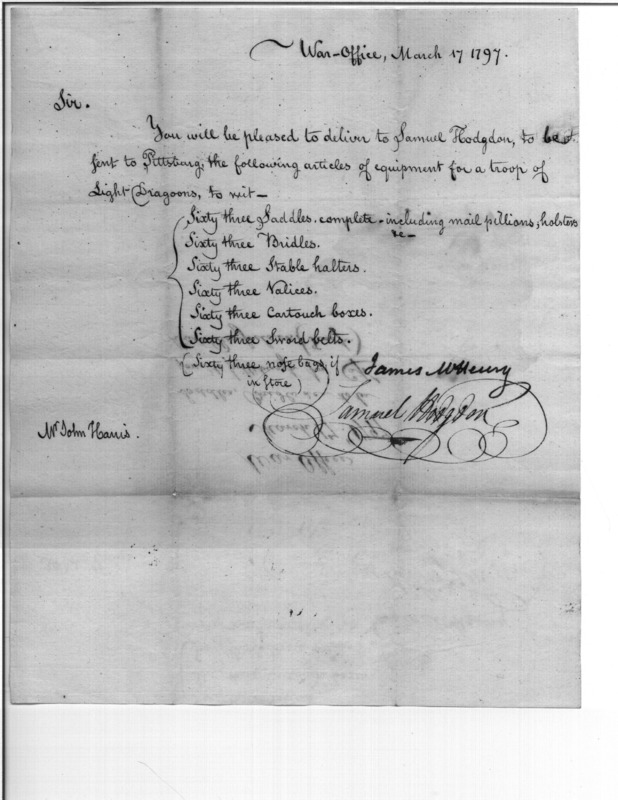 War-Office, March 17 1797.
Sir.
You will be pleased to deliver to Samuel Hodgdon, to be
sent to Pittsburg, the following articles of equipment for a troop of
Light Dragoons, to wit-
Sixty three Saddles. complete. including mail pillions, holsters
&c-
Sixty three Bridles.
Sixty three Stable halters.
Sixty three Valices.
Sixty three Cartouch boxes.
Sixty three Sword belts.
(Sixty three nose bags, if
in Store)
James McHenry
Samuel Hodgdon
Mr John Harris.